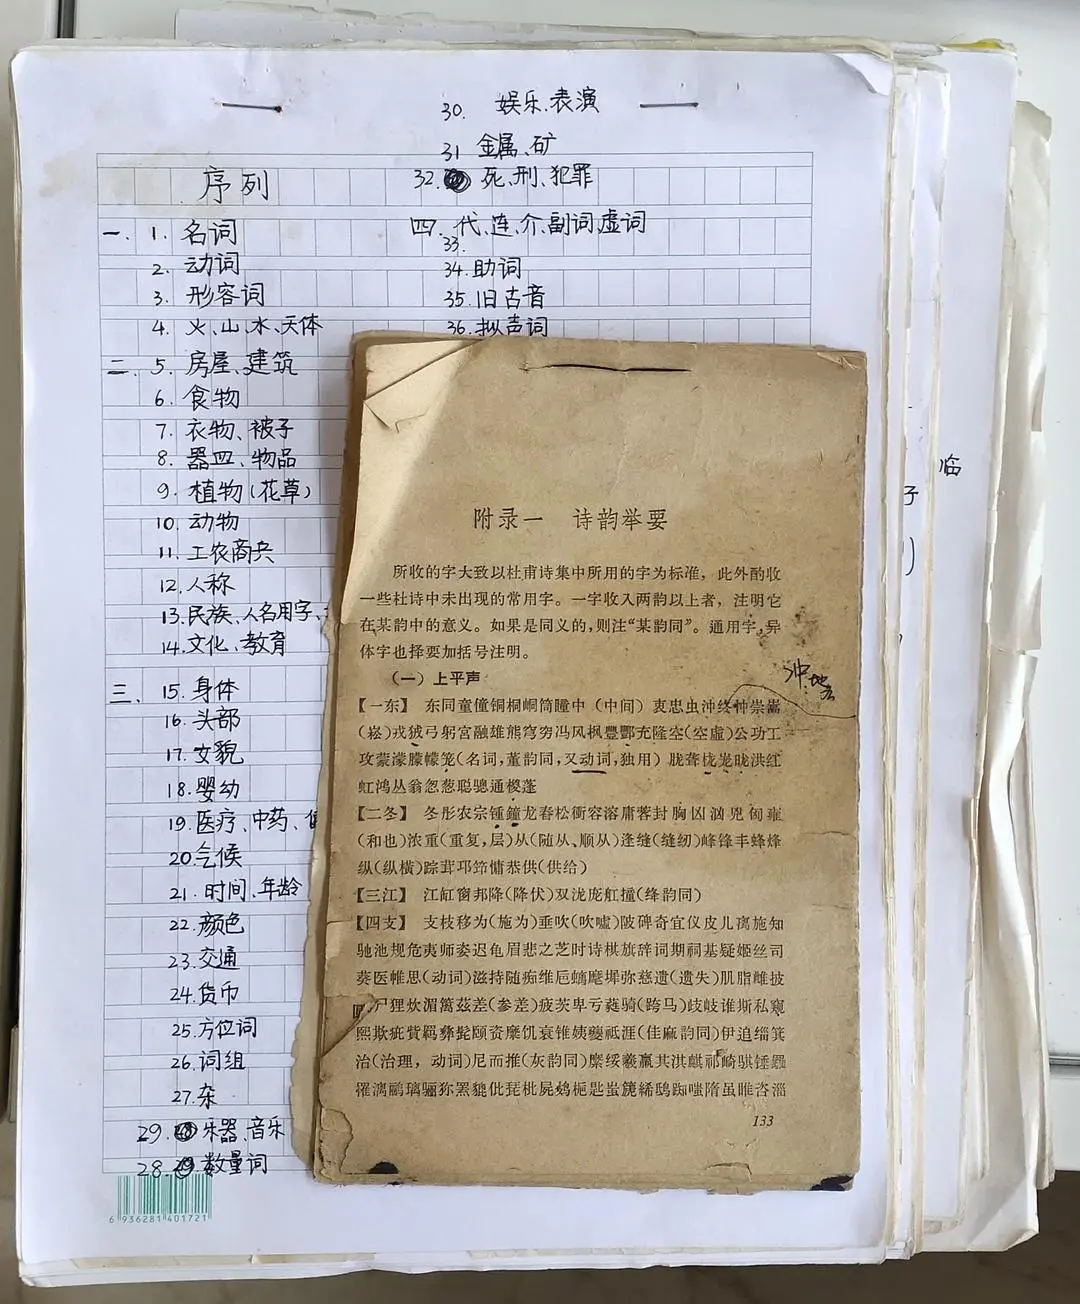 序列
一、1. 名词
2. 动词
3. 形容词
4. 火、山、水、天体
二、5. 房屋、建筑
6. 食物
7. 衣物、被子
8. 器皿、物品
9. 植物(花草)
10. 动物
11. 工农商兵
12. 人称
13. 民族、人名用字、
14. 文化、教育
三、15. 身体
16. 头部
17. 女貌
18. 婴幼
19. 医疗、中药、
20. 气候
21. 时间、年龄
22. 颜色
23. 交通
24. 货币
25. 方位词
26. 词组
27. 杂
29. 乐器、音乐
28. 数量词
6 936281 401721
30. 娱乐、表演
31 金属、矿
32. 死、刑、犯罪
四、代、连、介、副词、虚词
33.
34. 助词
35. 旧古音
36. 拟声词
临
附录一 诗韵举要
所收的字大致以杜甫诗集中所用的字为标准，此外酌收
一些杜诗中未出现的常用字。一字收入两韵以上者，注明它
在某韵中的意义。如果是同义的，则注“某韵同”。通用字，异
体字也择要加括号注明。
（一）上平声
【一东】 东同童僮铜桐峒筒瞳中（中间）衷忠虫沖终忡崇嵩
(崧)戎狨弓躬宫融雄熊穹穷冯风枫豐酆充隆空(空虚)公功工
攻蒙濛朦幪笼(名词，董韵同，又动词，独用)胧聋栊茏昽洪红
虹鸿丛翁忽葱聪骢通椶蓬
【二冬】 冬彤农宗锺鐘龙舂松衝容溶庸蓉封胸凶汹兇匈雍
(和也)浓重(重复，层)从(随从、顺从)逢缝(缝纫)峰锋丰蜂烽
纵(纵横)踪茸邛筇慵恭供(供给)
【三江】 江缸窗邦降(降伏)双泷庞舡撞(绛韵同)
【四支】 支枝移为(施为)垂吹(吹嘘)陂碑奇宜仪皮儿离施知
驰池规危夷师姿迟龟眉悲之芝时诗棋旗辞词期祠基疑姬丝司
葵医帷思(动词)滋持随痴维卮螭麾墀弥慈遗(遗失)肌脂雌披
尸狸炊湄篱兹差(参差)疲茨卑亏蕤骑(跨马)歧岐谁斯私窥
熙欺疵赀羁彝髭颐资糜饥衰锥姨夔祗涯(佳麻韵同)伊追缁箕
治(治理，动词)尼而推(灰韵同)縻绥羲羸其淇麒祁崎骐锤羆
罹漓鹂璃骊狝罴貔仳琵枇屍鸱栀匙蚩篪絺鸱踟嗤隋虽睢咨淄
133
沖. 地名